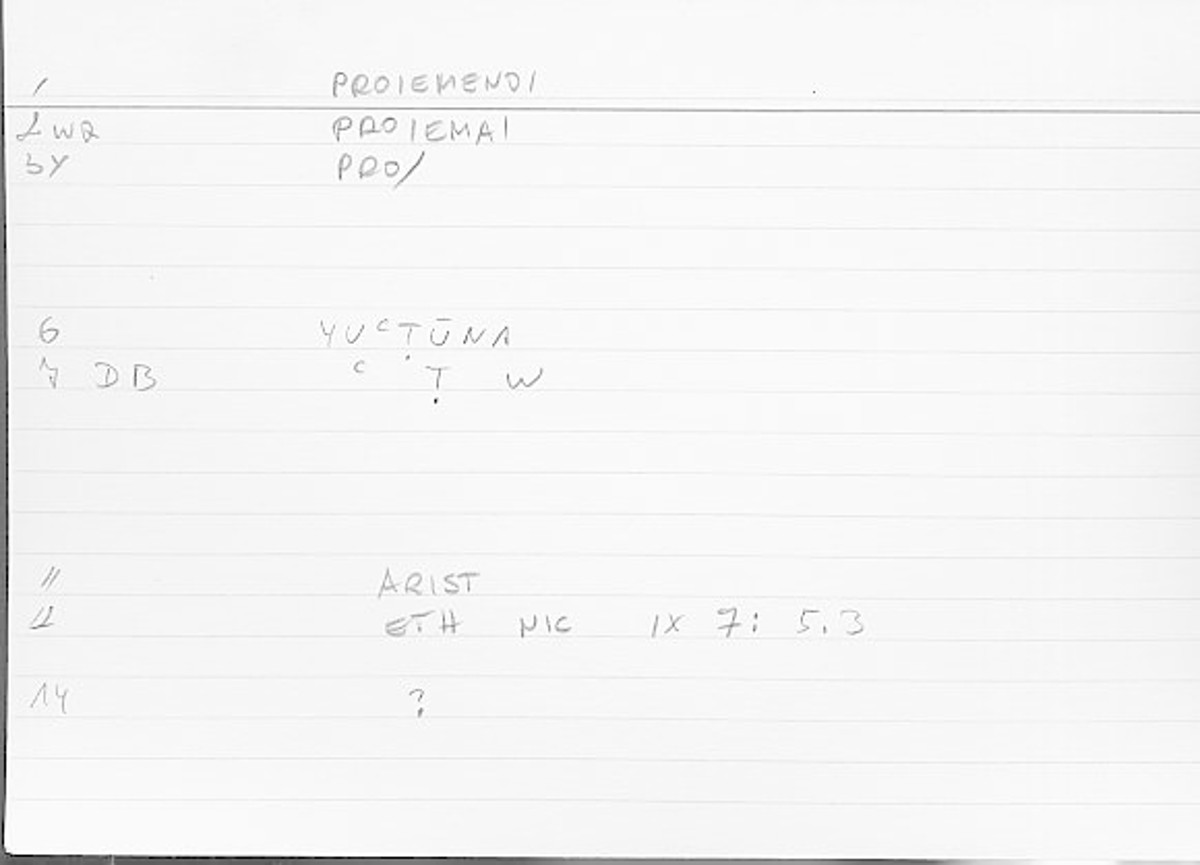 1 PROIEMENDI
2 WR PROIEMAI
3Y PRO/
6 YUᶜṬŪNA
7 DB ᶜ Ṭ W
11 ARIST
12 ETH NIC IX 7: 5.3
14 ?